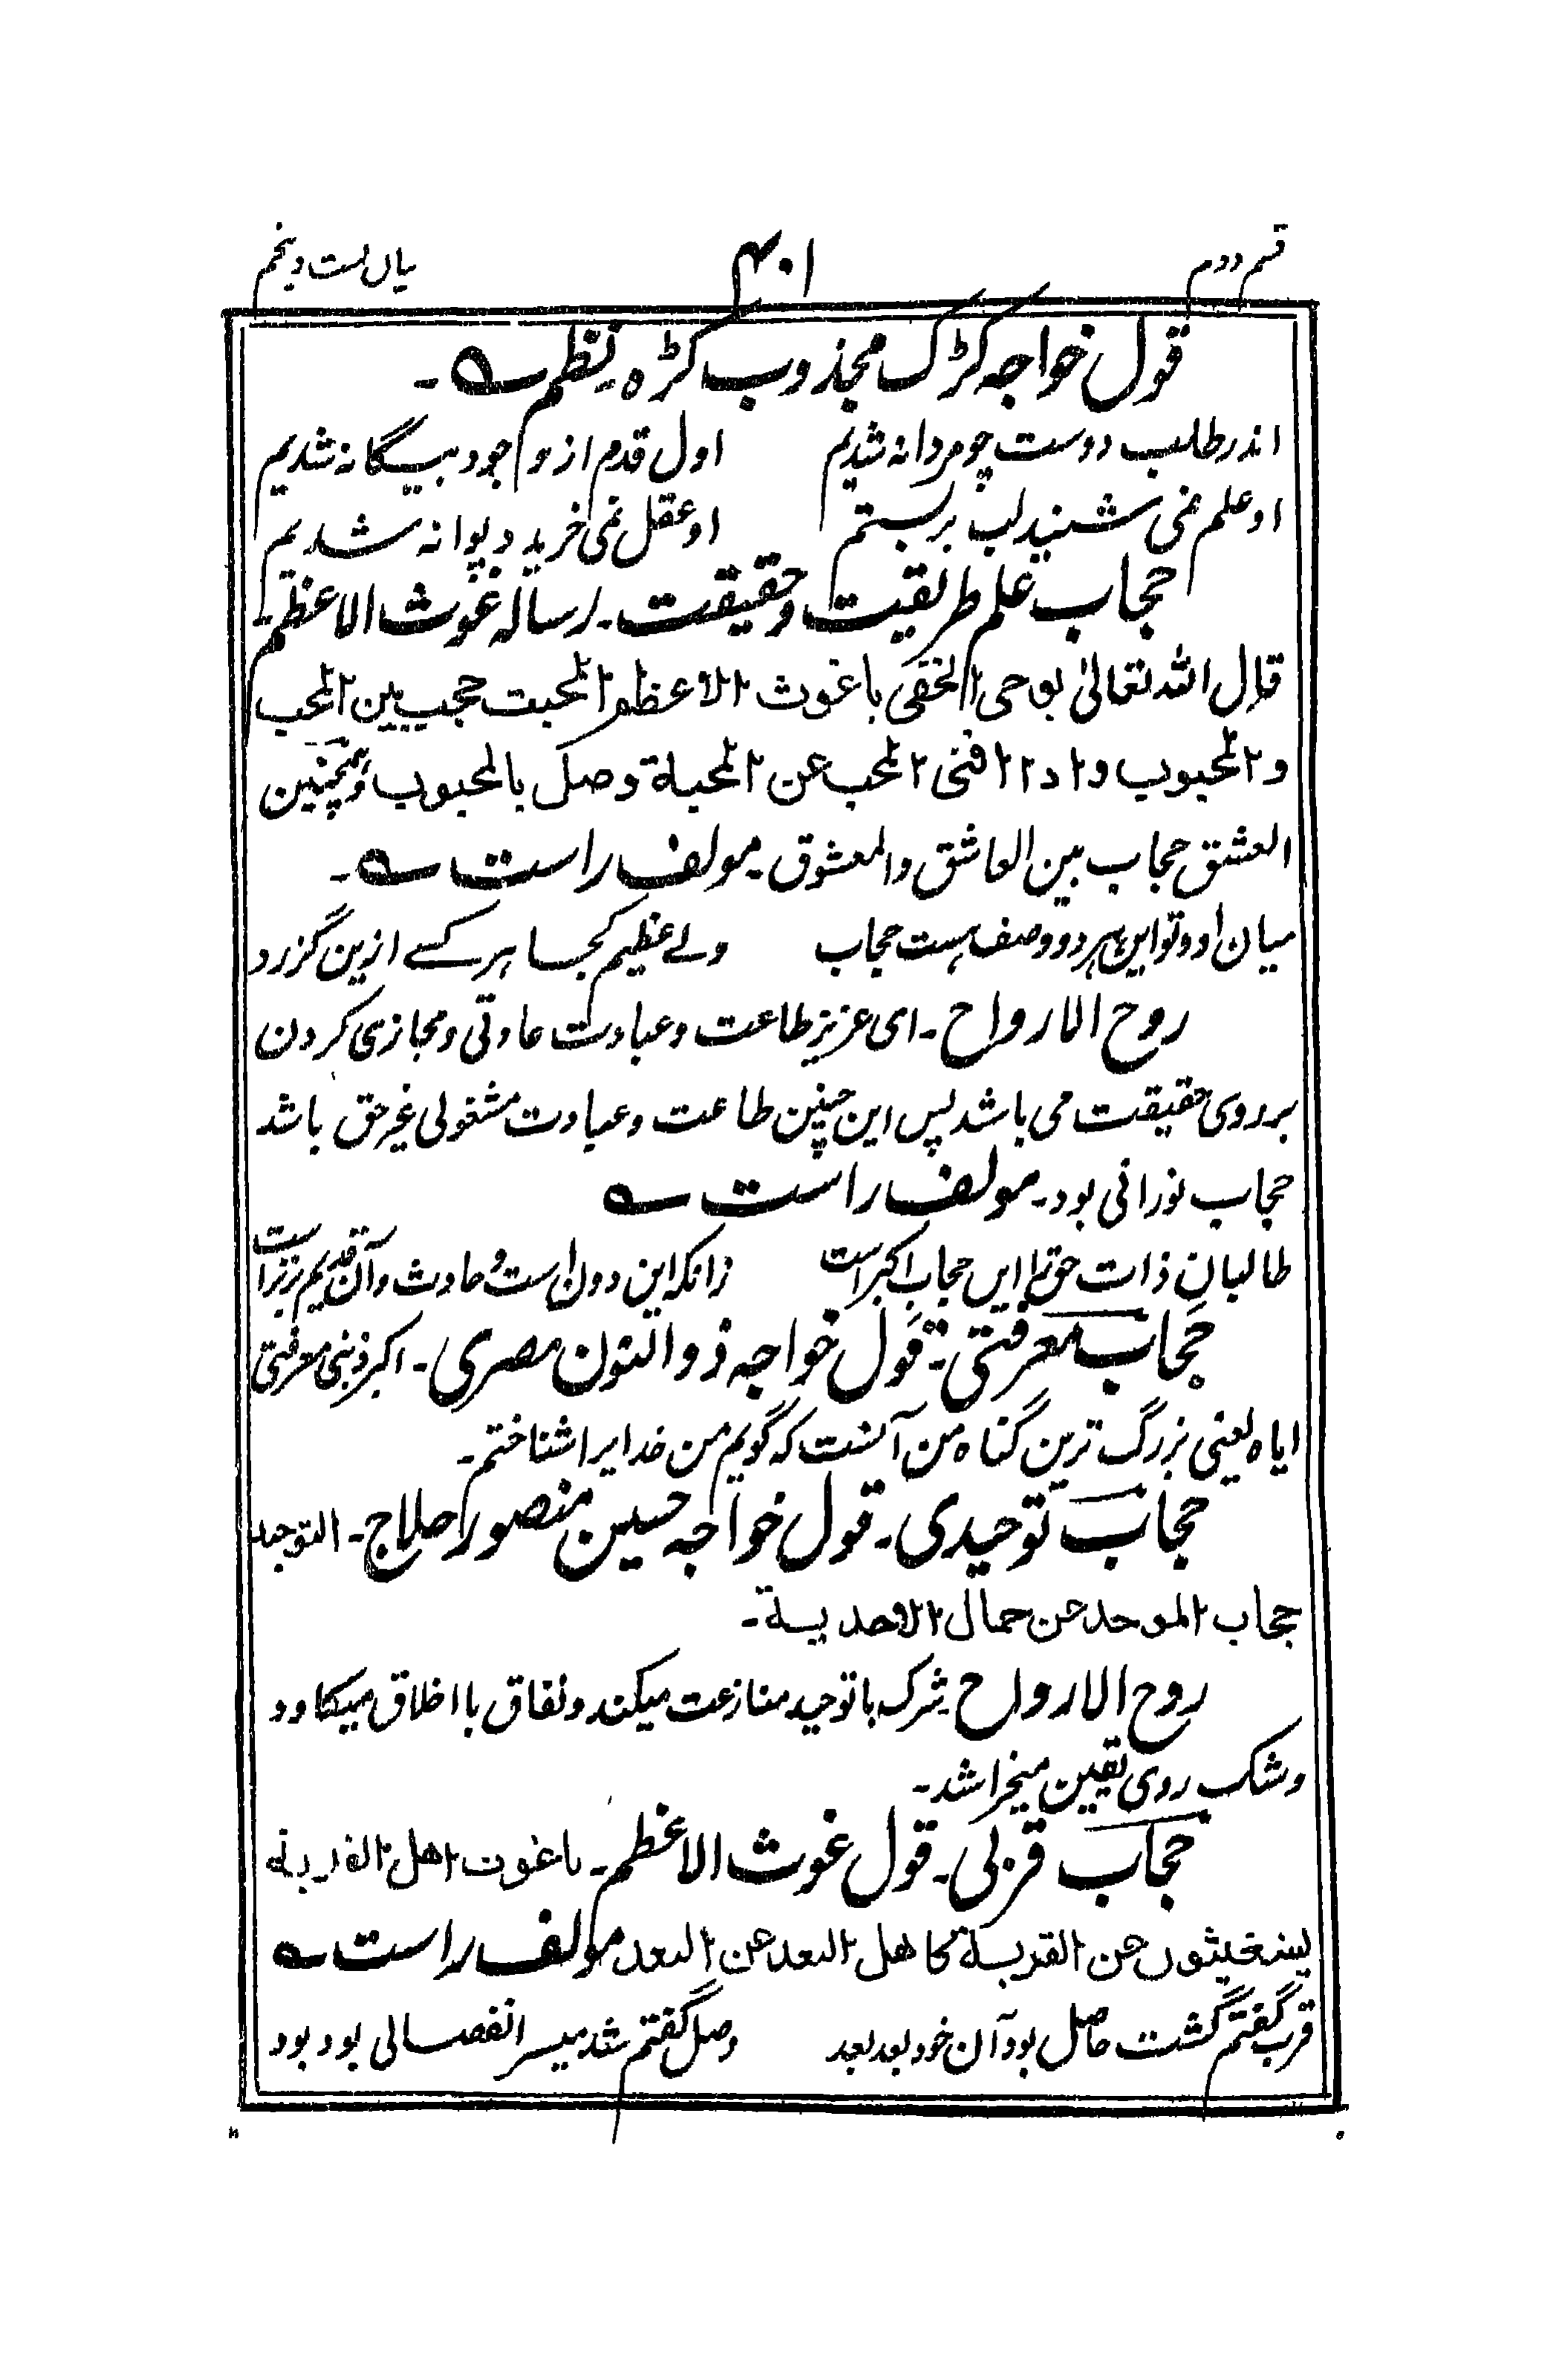 قسم دوم ۴۰۱ بیان بست و پنجم
قول خواجہ کڑک مجذوب کڑہ نظم ؎ ۔
اندر طلب دوست چو مردانہ شدیم اول قدم از وجود بیگانہ شدیم
او علم نمی شنید لب بر بستم او عقل نمی خرید دیوانہ شدیم
حجاب علم طریقت و حقیقت ۔ رسالہ غوث الاعظم ۔
قال اللہ تعالیٰ بوحی الخفی یا غوث الاعظم المحبت حجب بین المحب
و المحبوب و اذا افنی المحب عن المحبة وصل بالمحبوب وہمچنین
العشق حجاب بین العاشق والمعشوق ۔ مولف راست ؎ ۔
میان او و تو این ہر دو وصف ہست حجاب ولے عظیم کجا ہر کسے ازین گزرد
روح الارواح ۔ ای عزیز طاعت و عبادت عادتی و مجازی کردن
بر روی حقیقت می باشد پس این چنین طاعت و عبادت مشغولی غیر حق باشد
حجاب نورانی بود ۔ مولف راست ؎
طالبان ذات حق را این حجاب اکبر است زانکہ این دون است و حادث و آن قدیم برتر است
حجاب معرفتی ۔ قول خواجہ ذوالنون مصری ۔ اکبر ذنبی معرفتی
ایاہ یعنی بزرگ ترین گناہ من آنست کہ گویم من خدایرا شناختم ۔
حجاب توحیدی ۔ قول خواجہ حسین منصور حلاج ۔ التوحید
حجاب الموحد عن جمال الاحدیة ۔
روح الارواح شرک با توحید منازعت میکند و نفاق با اخلاق میکاود
و شک روی یقین میخراشد ۔
حجاب قربی ۔ قول غوث الاعظم ۔ یا غوث اهل القربة
یستغیثون عن القربة کا هل البعد عن البعد مولف راست ؎
قرب گفتم گشت حاصل بود آن خود بعد بعد وصل گفتم شد میسر انفصالی بود بود